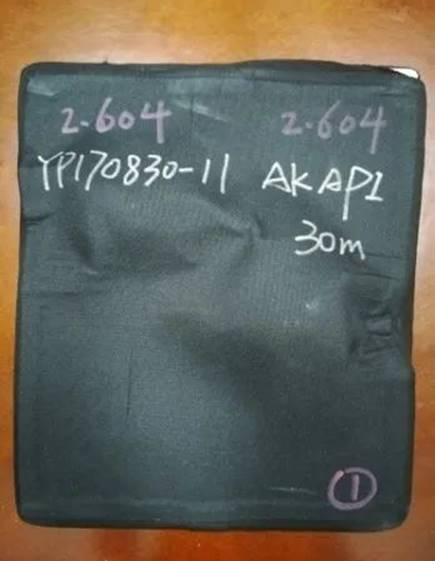 2.604 2.604
YP170830-11 AKAPI
30m
1